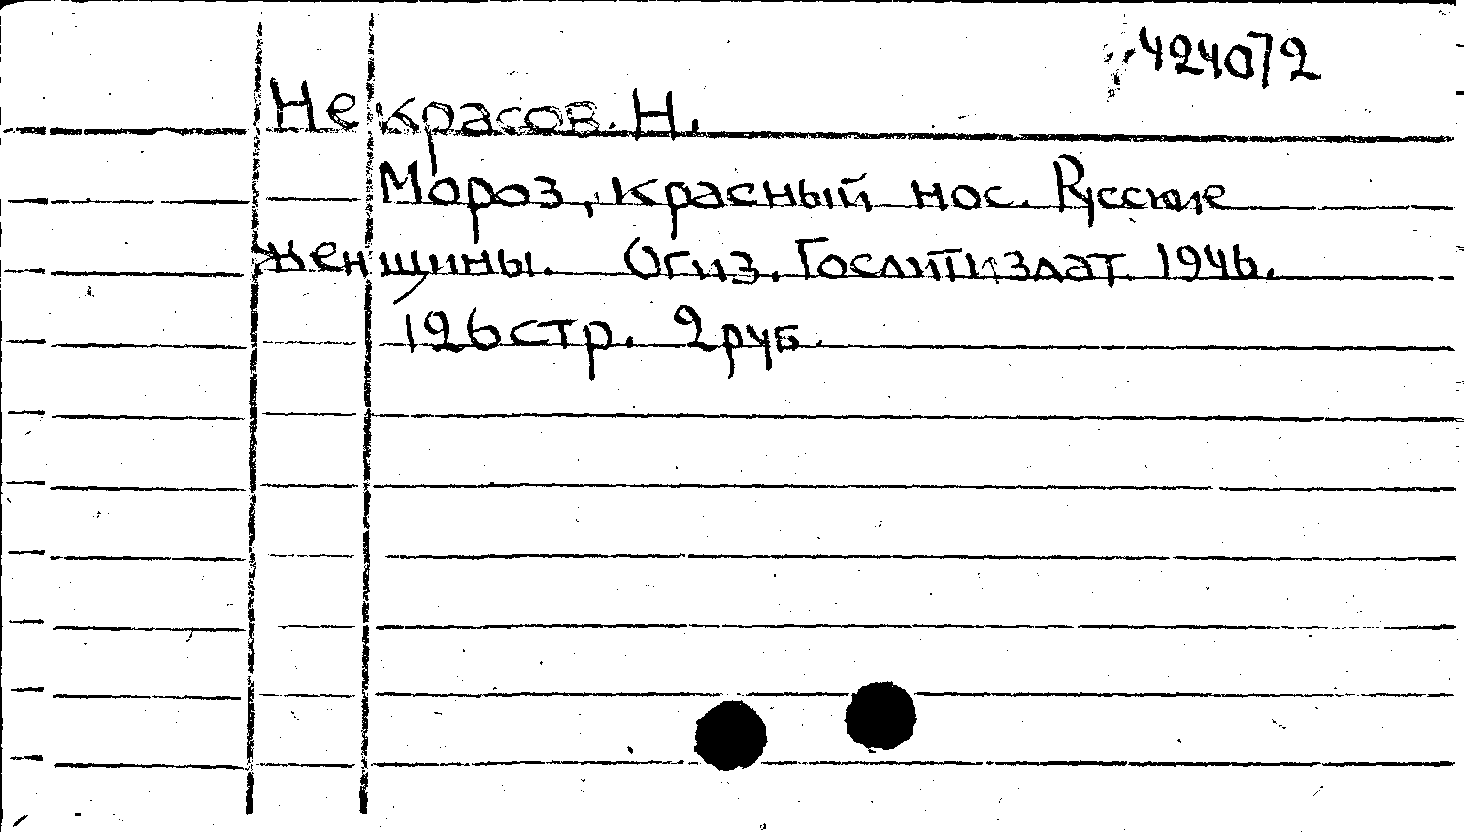 424072
Некрасов. Н.
Мороз, красный нос. Русские
женщины. Огиз. Гослитиздат. 1946.
126 стр. 2 руб.